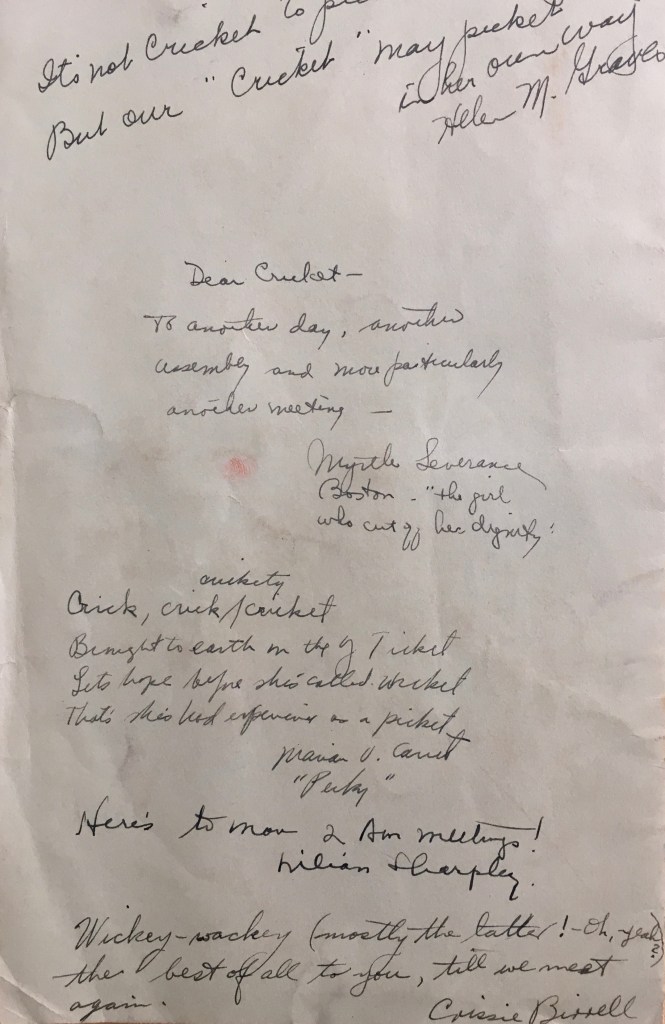 It's not Cricket to
But our "Cricket" may picket
in her own way
Helen M. Graves
Dear Cricket —
To another day, another
assembly and more particularly
another meeting —
Myrtle Severance
Boston - "the girl
who cut off her dignity"
crickety
Crick, crick/cricket
Brought to earth on the Y Ticket
Lets hope before she's called wicket
That she's had experience as a picket
Marian V.
"Perky"
Here's to more 2 Am meetings!
Lilian Sharpley.
Wickey-wackey (mostly the latter! - Oh, yeah?)
the best of all to you, till we meet
again.
Crissie Birrell